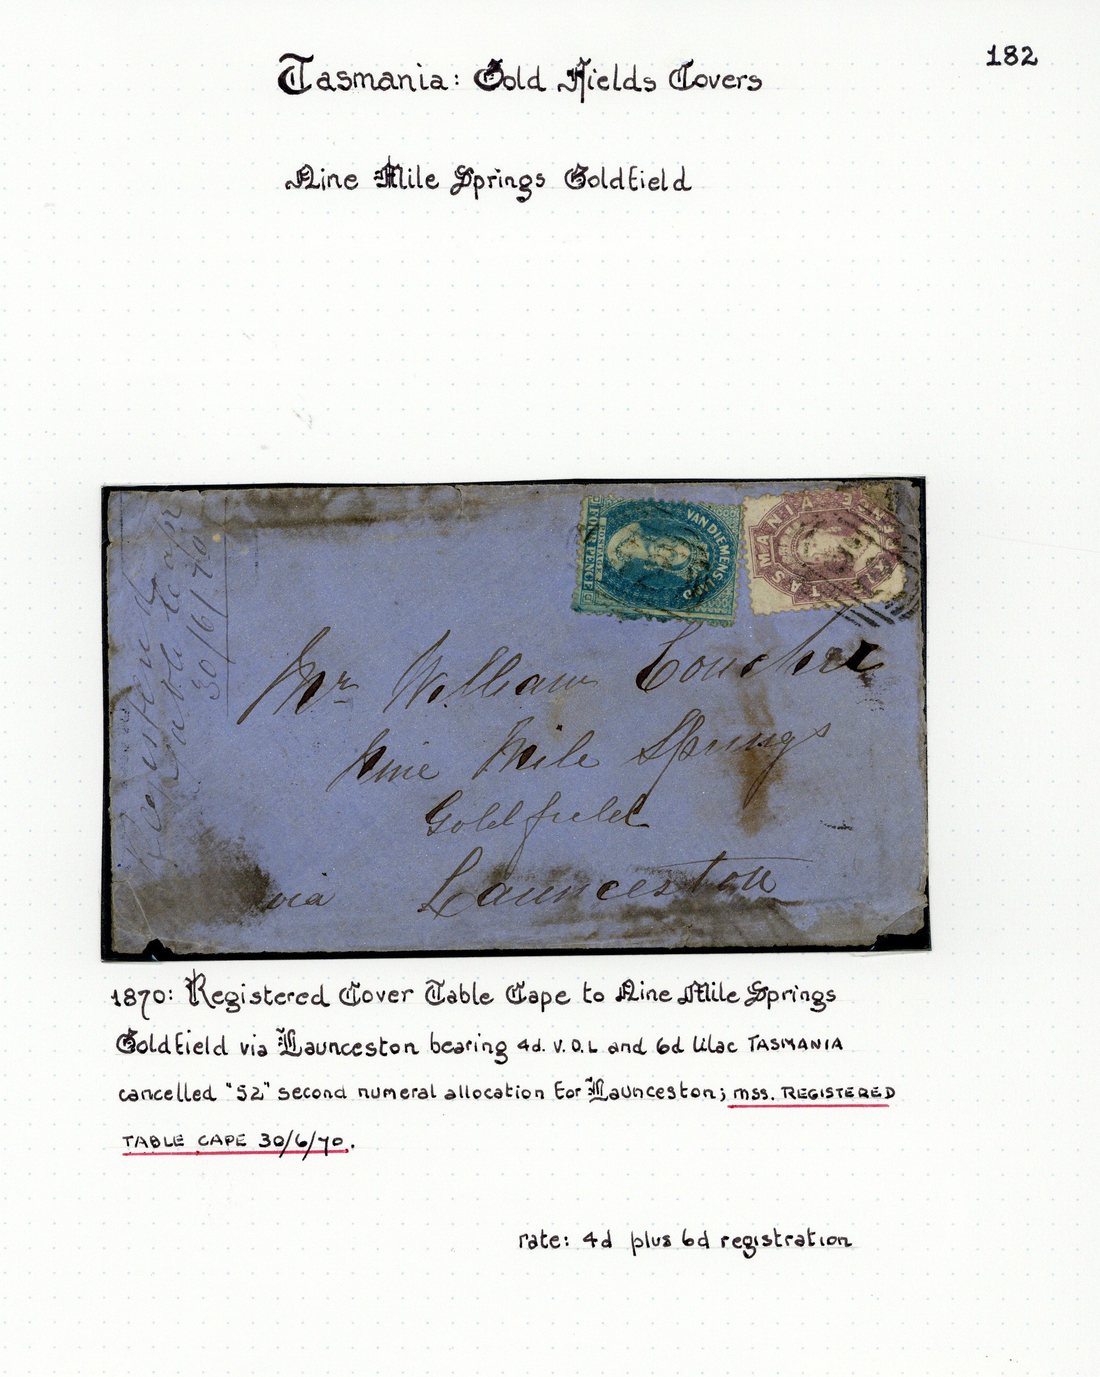 182
Tasmania: Gold Fields Covers
Nine Mile Springs Goldfield
Registered
Table Cape
30/6/70
FOUR PENCE
POSTAGE
VAN DIEMENS LND
TASMANIA
Mr William
Nine Mile Springs
Goldfield
via Launceston
1870: Registered Cover Table Cape to Nine Mile Springs
Goldfield via Launceston bearing 4d. V.D.L and 6d lilac TASMANIA
cancelled "52" second numeral allocation for Launceston; mss. REGISTERED
TABLE CAPE 30/6/70.
rate: 4d plus 6d registration